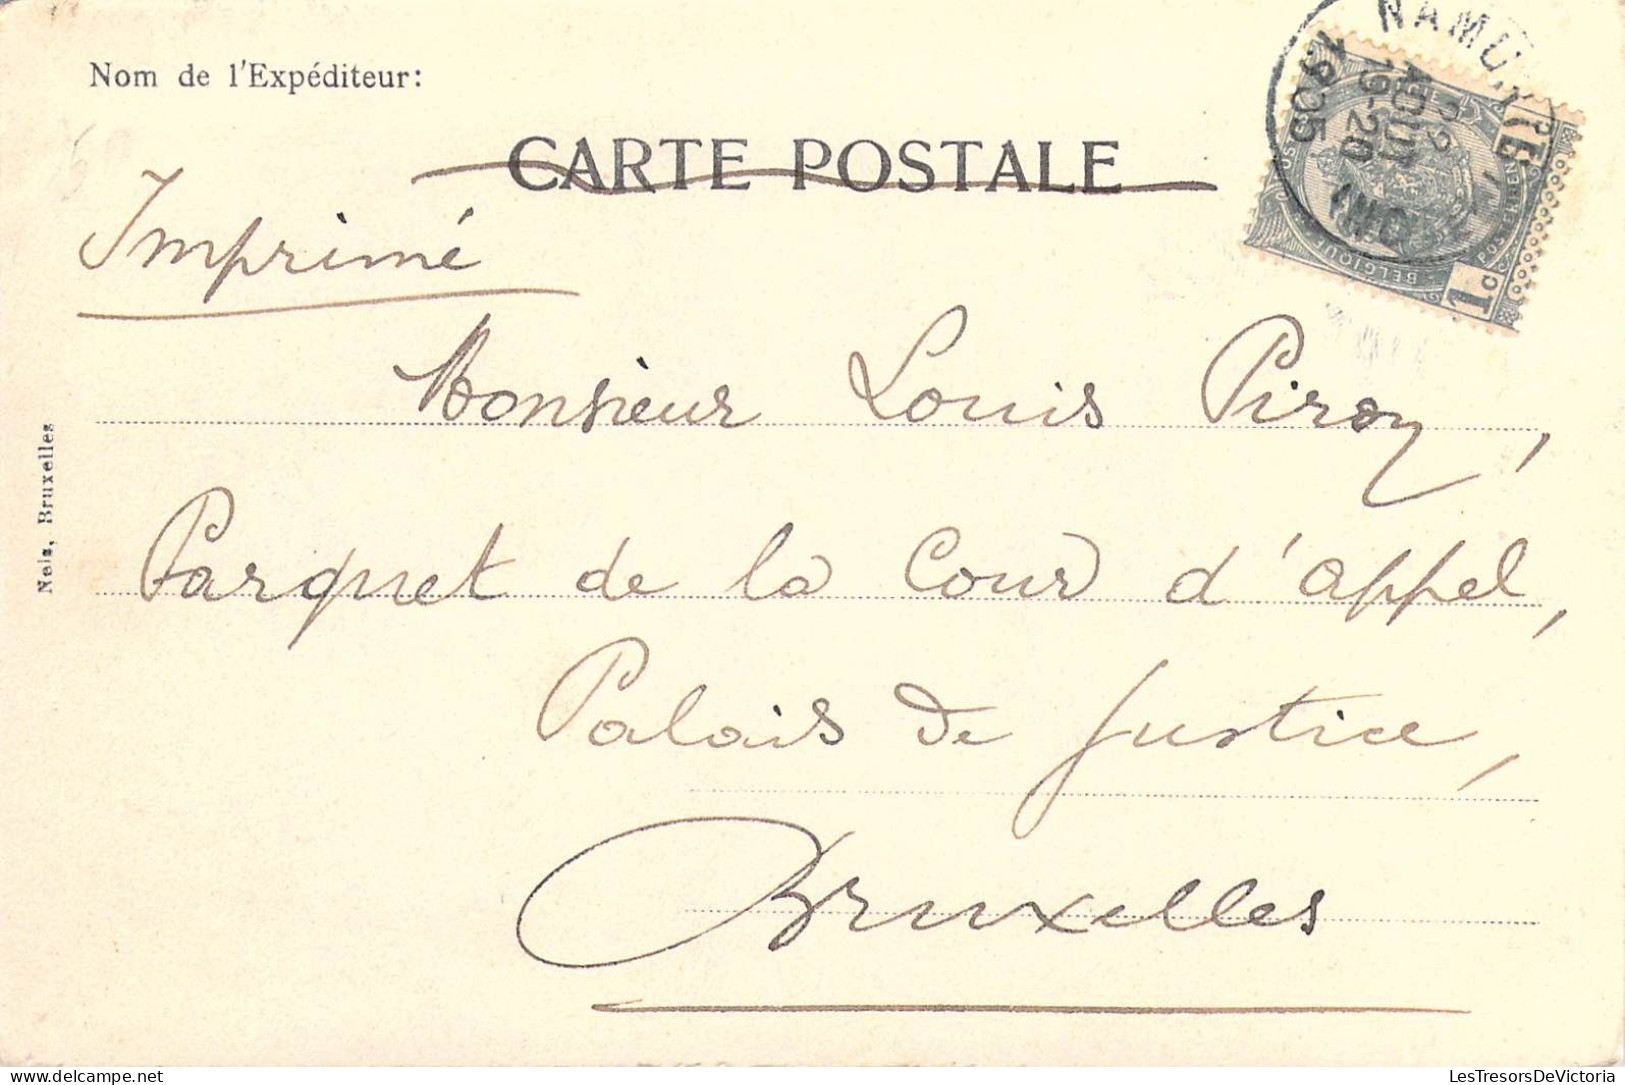 Nom de l'Expéditeur:
CARTE POSTALE
Imprimé
NAMUR
22
AOUT
19-20
1905
BELGIQUE
1c
Monsieur Louis Piron,
Parquet de la Cour d'appel,
Palais de Justice,
Bruxelles
Nels, Bruxelles
LesTresorsDeVictoria